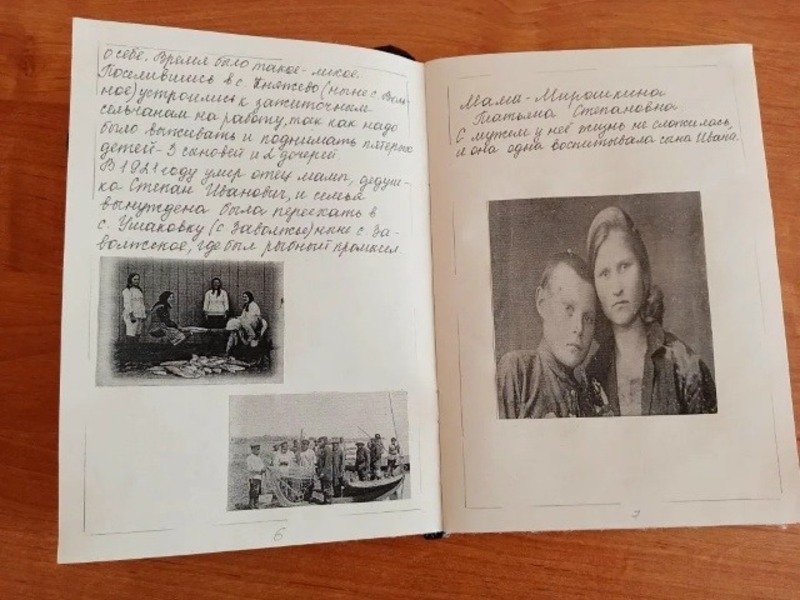 о себе. Время было такое - лихое.
Поселившись в с. Княжево (ныне с. Воль-
ное) устроились к зажиточным
сельчанам на работу, так как надо
было выживать и поднимать пятерых
детей - 3 сыновей и 2 дочерей.
В 1921 году умер отец мамы, дедуш-
ка Степан Иванович, и семья
вынуждена была переехать в
с. Ушаковку (с Заволжье) ныне с. За-
волжское, где был рыбный промысел.
6
Мама - Мирошкина
Татьяна Степановна
С мужем у неё жизнь не сложилась,
и она одна воспитывала сына Ивана.
7